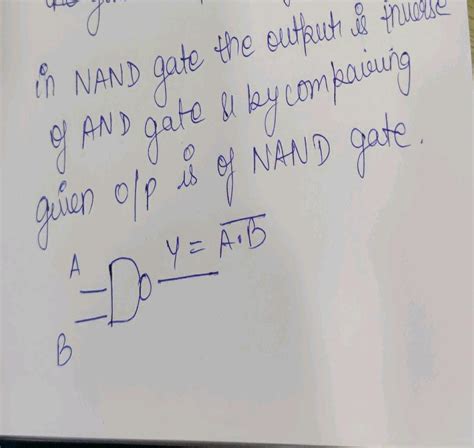 in NAND gate the output is inverse
of AND gate & by compairing
given o/p is of NAND gate.
A
Y = \overline{A·B}
B